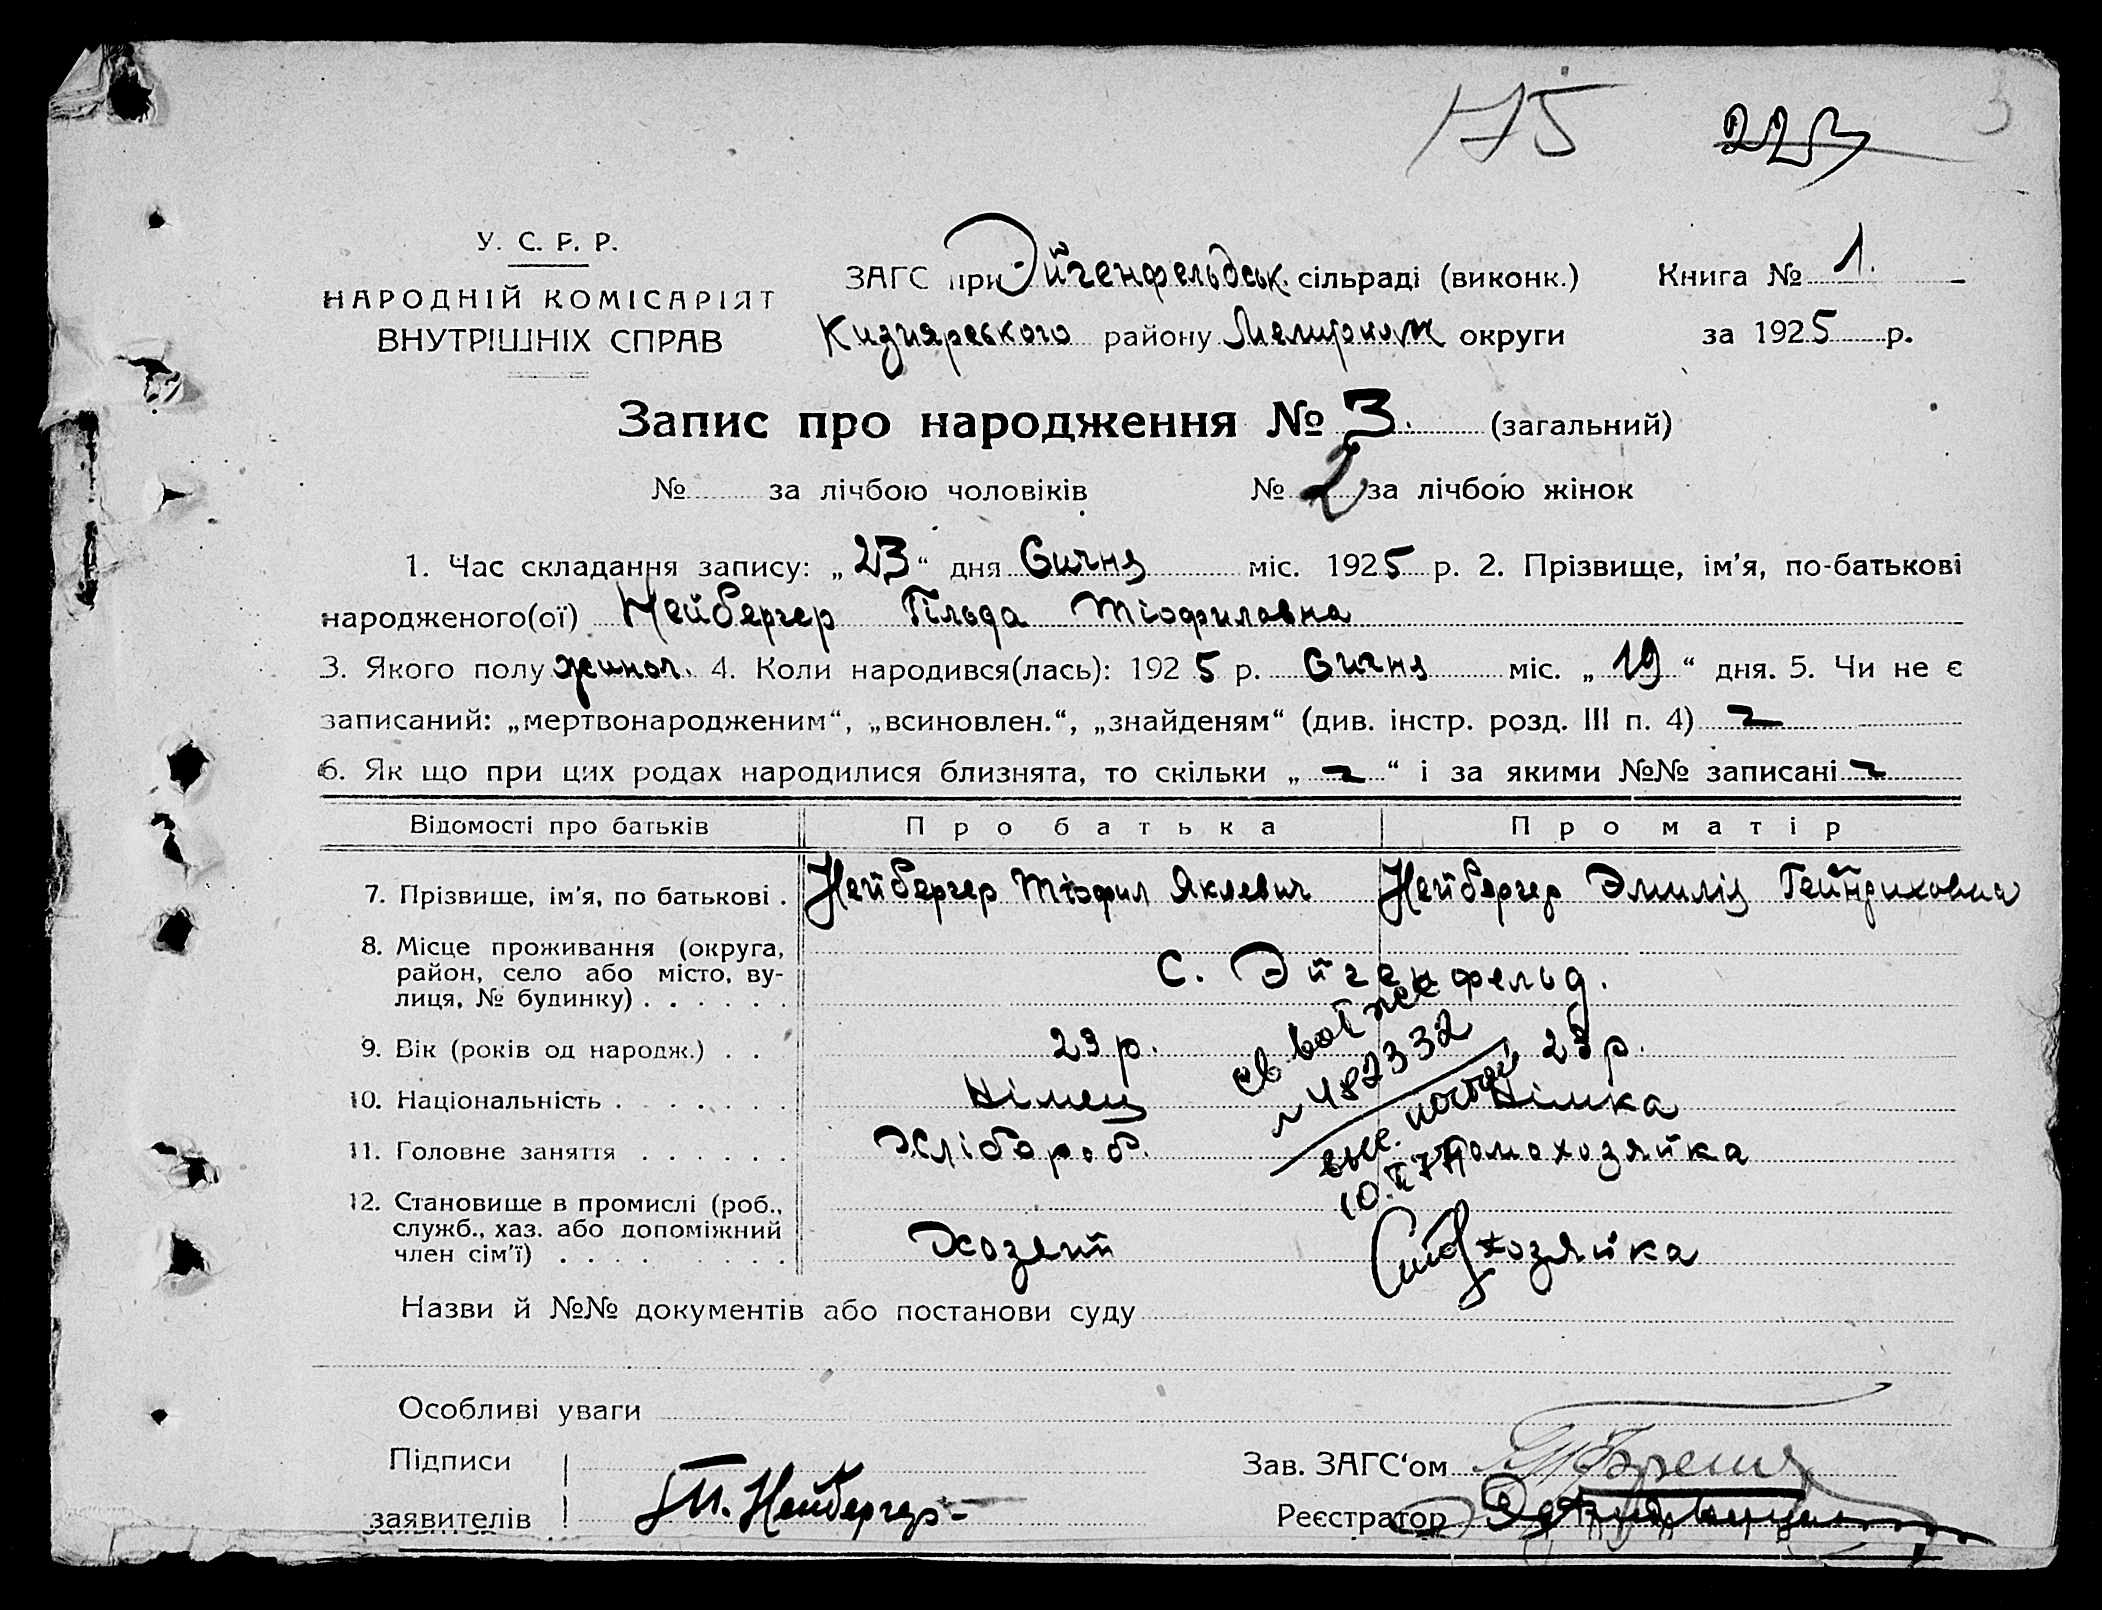 175 223
У. С. Р. Р.
НАРОДНІЙ КОМІСАРІЯТ
ВНУТРІШНІХ СПРАВ
ЗАГС при Эйгенфельдськ. сільраді (виконк.) Книга № 1.
Кизиярського району Мелитопол округи за 1925 р.
Запис про народження № 3. (загальний)
№ за лічбою чоловіків № 2 за лічбою жінок
1. Час складання запису: „23“ дня Сичня міс. 1925 р. 2. Прізвище, ім'я, по-батькові
народженого(ої) Нейбергер Гільда Тіофиловна
3. Якого полу жиноч. 4. Коли народився(лась): 1925 р. Сичня міс. „19“ дня. 5. Чи не є
записаний: „мертвонародженим“, „всиновлен.“, „знайденям“ (див. інстр. розд. III п. 4)
6. Як що при цих родах народилися близнята, то скільки „ “ і за якими №№ записані
Відомості про батьків Про батька Про матір
7. Прізвище, ім'я, по батькові . Нейбергер Тіофил Яклевич Нейбергер Эмилія Гейндиховна
8. Місце проживання (округа,
район, село або місто, ву-
лиця, № будинку) . . . . . . С. Эйгенфельд.
9. Вік (років од народж.) . . 23 р. 23 р.
10. Національність . . . . . . . Німец Німка
11. Головне заняття . . . . . . Хлібороб. Домохозяйка
12. Становище в промислі (роб.,
служб., хаз. або допоміжний
член сім'ї) . . . . . . . . Хозяин хозяйка
св
№ 482332
10.II 77
Назви й №№ документів або постанови суду
Особливі уваги
Підписи
заявителів Т. Нейбергер
Зав. ЗАГС'ом
Реєстратор